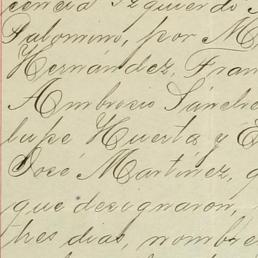 cencia Izquierdo
Palomino, por M
Hernández, Fran
Ambrosio Sánche
lupe Huerta y E
José Martínez, q
que designaron,
tres días, nombre